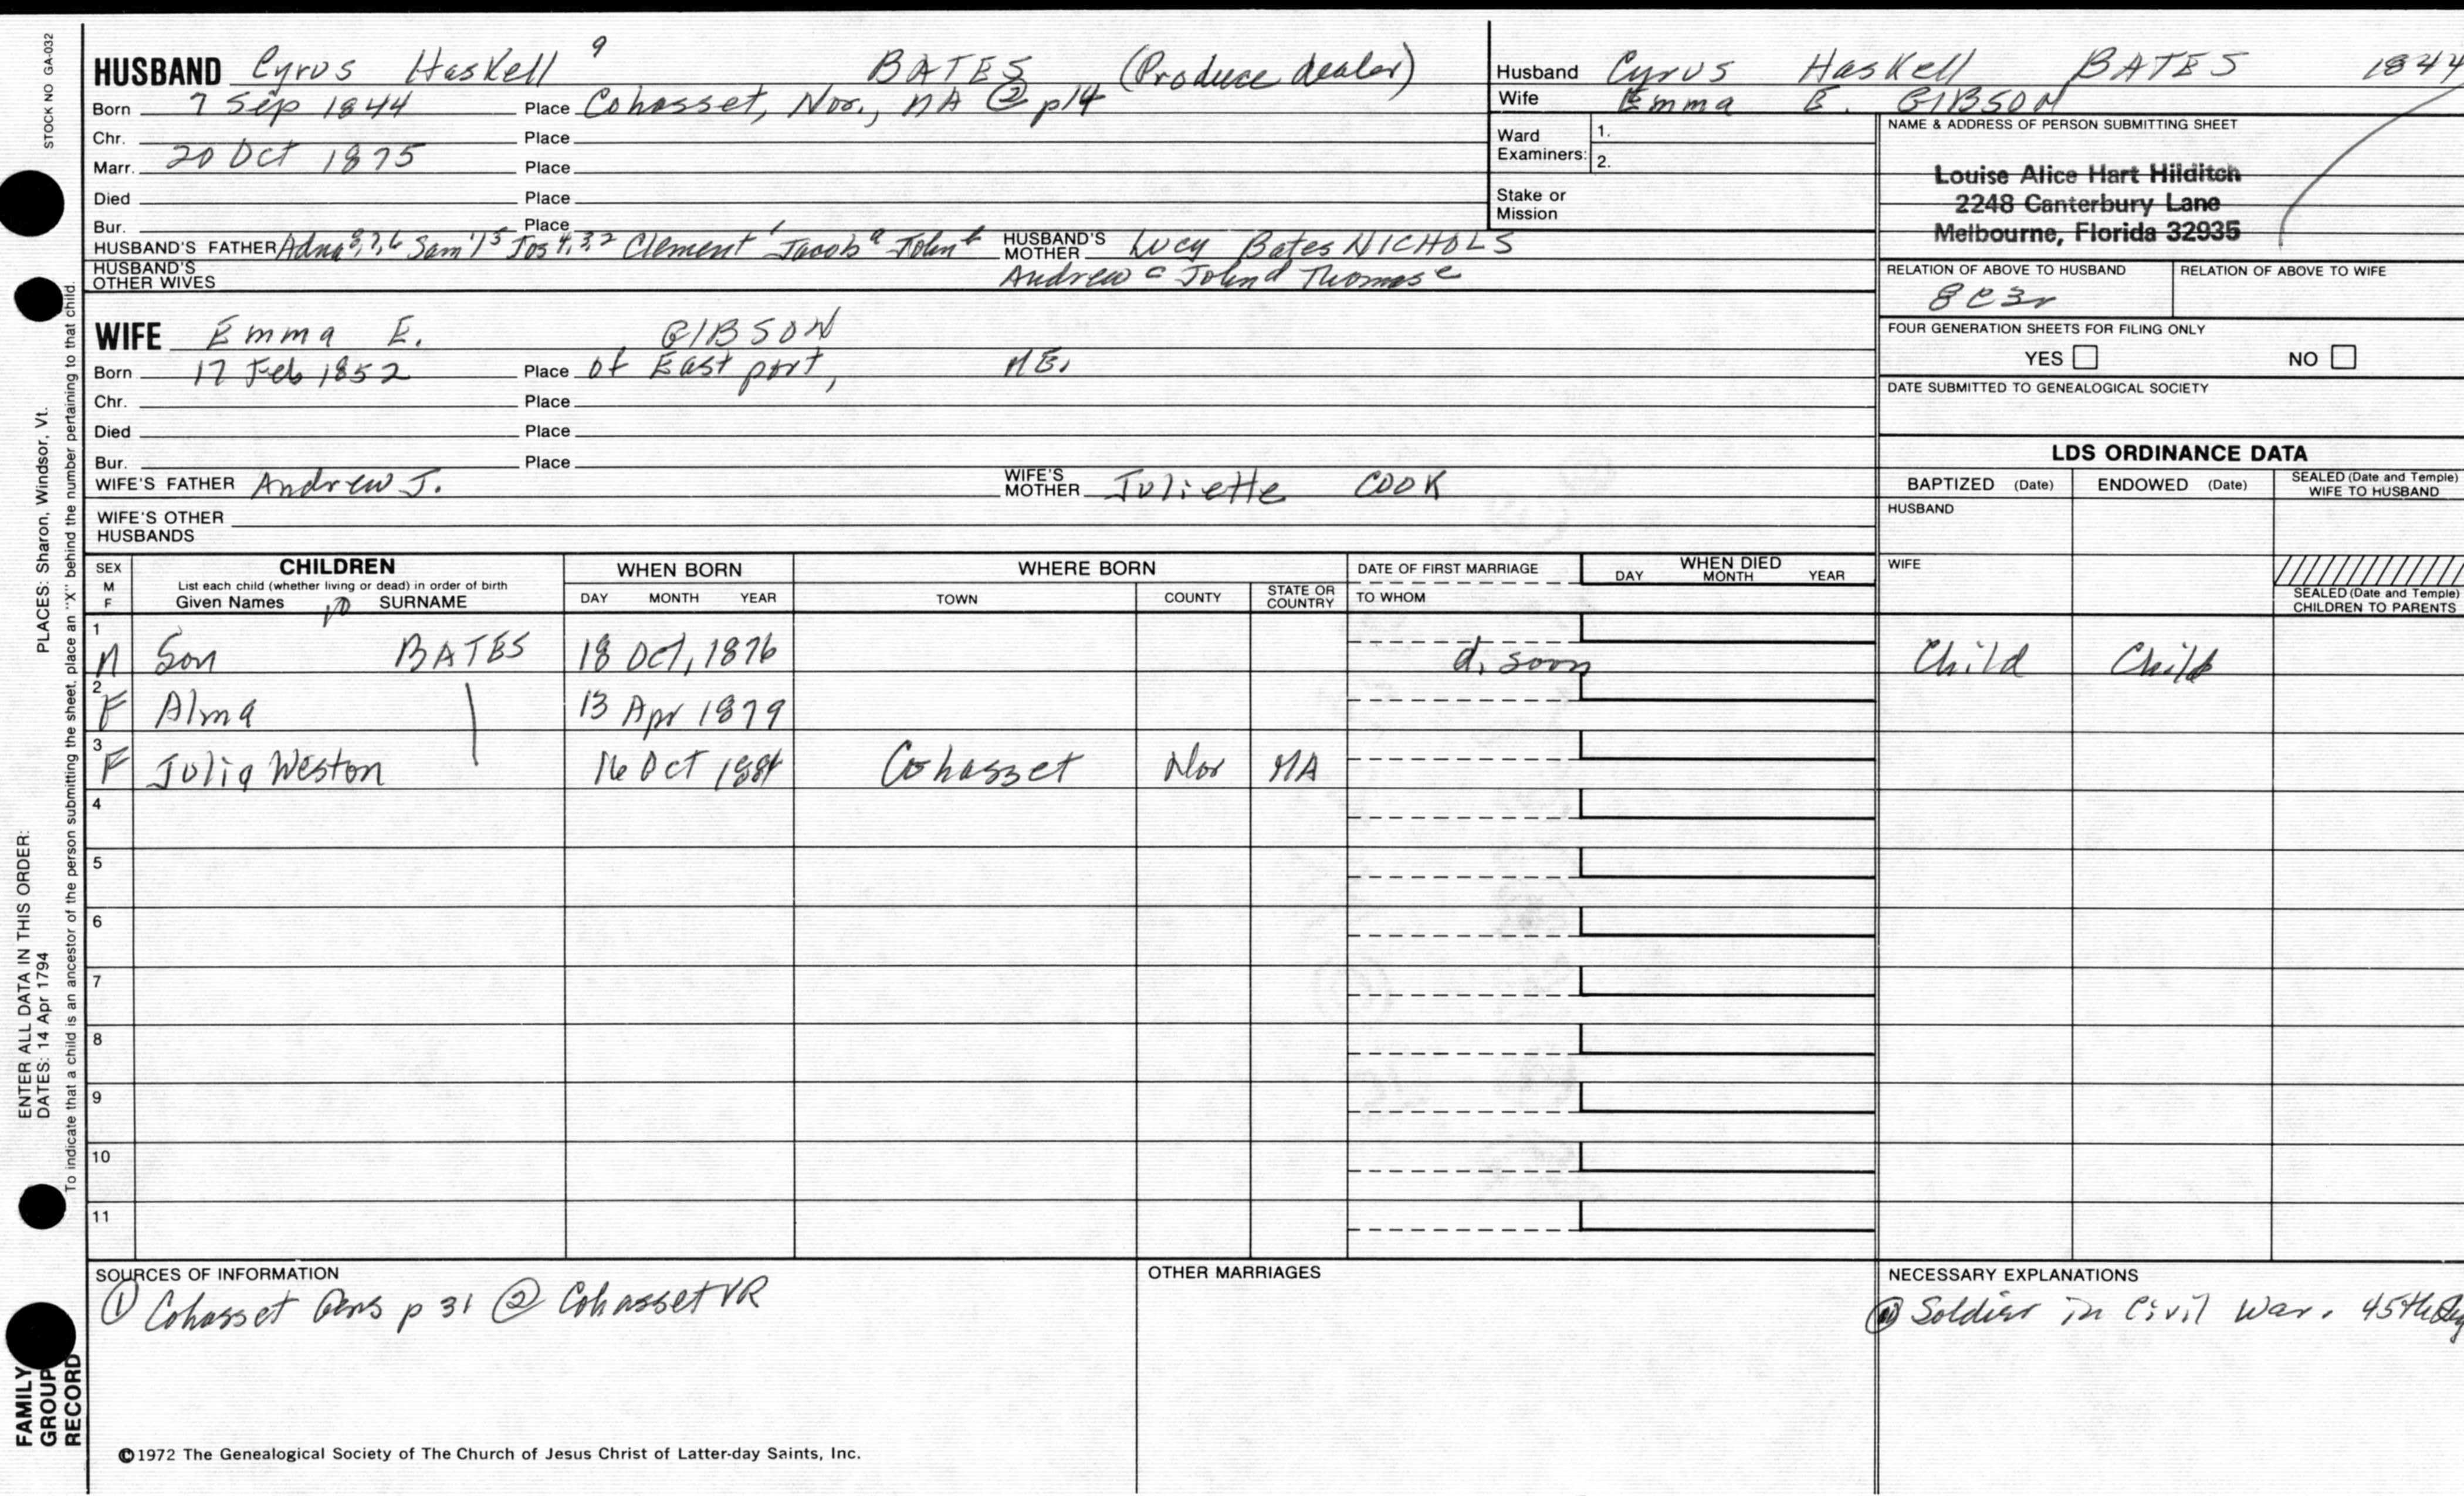 STOCK NO GA-032
HUSBAND Cyrus Haskell 9 BATES (Produce dealer)
Born 7 Sep 1844 Place Cohasset, Nor., MA @ p14
Chr. Place
Marr. 20 Oct 1875 Place
Died Place
Bur. Place
HUSBAND'S FATHER Adna 8,7,6 Sam'l 5 Jos 4,3,2 Clement 1 Jacob a John b HUSBAND'S MOTHER Lucy Bates NICHOLS
HUSBAND'S OTHER WIVES Andrew c John d Thomas e
WIFE Emma E. GIBSON
Born 17 Feb 1852 Place of Eastport, ME.
Chr. Place
Died Place
Bur. Place
WIFE'S FATHER Andrew J. WIFE'S MOTHER Juliette COOK
WIFE'S OTHER HUSBANDS
Husband Cyrus Haskell BATES 1844
Wife Emma E. GIBSON
Ward Examiners: 1. 2.
Stake or Mission
NAME & ADDRESS OF PERSON SUBMITTING SHEET
Louise Alice Hart Hilditch
2248 Canterbury Lane
Melbourne, Florida 32935
RELATION OF ABOVE TO HUSBAND RELATION OF ABOVE TO WIFE
8C3r
FOUR GENERATION SHEETS FOR FILING ONLY
YES NO
DATE SUBMITTED TO GENEALOGICAL SOCIETY
LDS ORDINANCE DATA
BAPTIZED (Date) ENDOWED (Date) SEALED (Date and Temple) WIFE TO HUSBAND
HUSBAND
WIFE
SEALED (Date and Temple) CHILDREN TO PARENTS
SEX M F CHILDREN WHEN BORN WHERE BORN DATE OF FIRST MARRIAGE WHEN DIED
List each child (whether living or dead) in order of birth
Given Names 10 SURNAME DAY MONTH YEAR TOWN COUNTY STATE OR COUNTRY TO WHOM DAY MONTH YEAR
1 M Son BATES 18 Oct, 1876 d. soon Child Child
2 F Alma 13 Apr 1879
3 F Julia Weston 16 Oct 1884 Cohasset Nor MA
4
5
6
7
8
9
10
11
SOURCES OF INFORMATION
① Cohasset Gens p 31 ② Cohasset VR
OTHER MARRIAGES
NECESSARY EXPLANATIONS
Soldier in Civil War. 45th
©1972 The Genealogical Society of The Church of Jesus Christ of Latter-day Saints, Inc.
FAMILY GROUP RECORD
ENTER ALL DATA IN THIS ORDER:
DATES: 14 Apr 1794
PLACES: Sharon, Windsor, Vt.
To indicate that a child is an ancestor of the person submitting the sheet, place an "X" behind the number pertaining to that child.